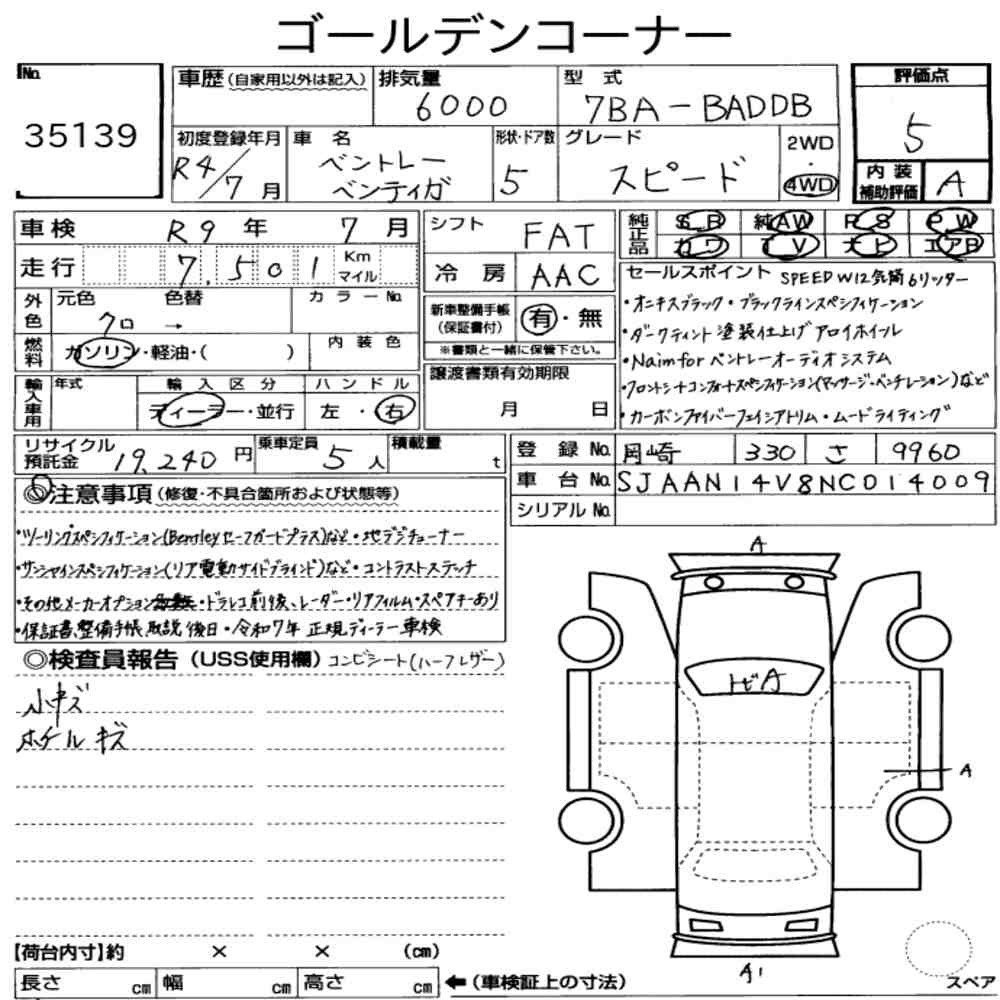 ゴールデンコーナー
No.
35139
車歴(自家用以外は記入)
排気量
6000
型式
7BA-BADDB
評価点
5
初度登録年月
R4/7月
車名
ベントレー
ベンティガ
形状・ドア数
5
グレード
スピード
2WD
・
4WD
内装
補助評価
A
車検 R9年 7月
走行 7,501 Km
マイル
外色
元色 色替
クロ →
カラーNo.
燃料
ガソリン・軽油・( )
内装色
輸入車用
年式
輸入区分
ディーラー・並行
ハンドル
左・右
リサイクル
預託金 19,240円
乗車定員 5人
積載量 t
シフト FAT
冷房 AAC
新車整備手帳
(保証書付)
有・無
※書類と一緒に保管下さい。
譲渡書類有効期限
月 日
純正品
S R 純AW P S P W
カワ T V ナビ エアB
セールスポイント SPEED W12気筒6リッター
・オニキスブラック・ブラックラインスペシフィケーション
・ダークティント塗装仕上げアロイホイール
・Naim for ベントレーオーディオシステム
・フロントシートコンフォートスペシフィケーション(マッサージ・ベンチレーション)など
・カーボンファイバーフェイシアトリム・ムードライティング
登録No. 岡崎 330 さ 9960
車台No. SJAAN14V8NC014009
シリアルNo.
◎注意事項(修復・不具合箇所および状態等)
・ツーリングスペシフィケーション(Bentleyセーフガードプラス)など・地デジチューナー
・サンシャインスペシフィケーション(リア電動サイドブラインド)など・コントラストステッチ
・その他メーカーオプション・ドラレコ前後、レーダー・リアフィルム・スペアキーあり
・保証書、整備手帳、取説後日・令和7年正規ディーラー車検
◎検査員報告(USS使用欄) コンビシート(ハーフレザー)
小キズ
ホイールキズ
A
トビA
A
A1
スペア
【荷台内寸】約 × × (cm)
長さ cm 幅 cm 高さ cm ←(車検証上の寸法)